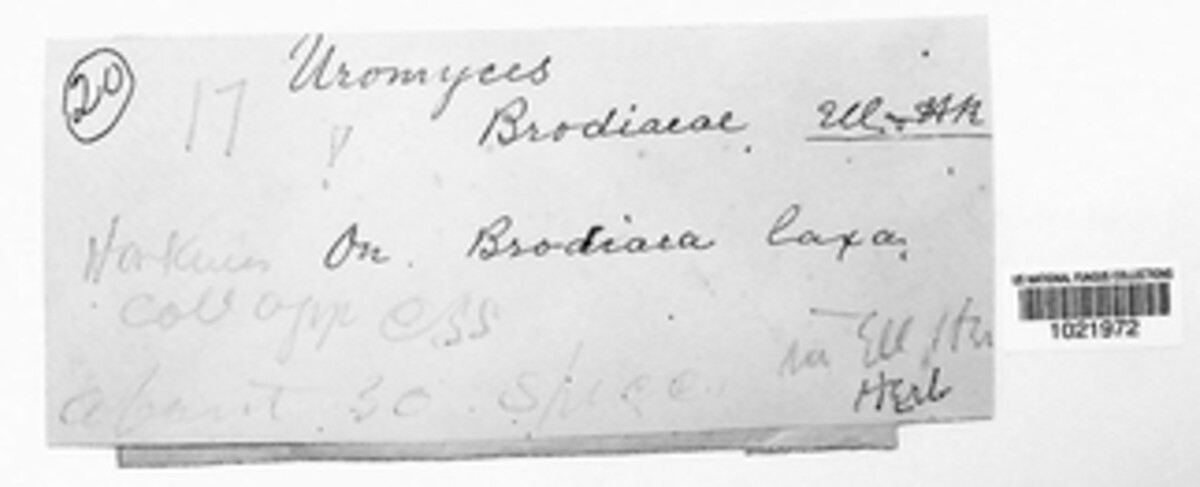 20
17
Uromyces
Brodiaeae Ell & Hk
Harkness On Brodiaea laxa.
coll app ESS
about 30 spec. in Ell Hr
Herb
US NATIONAL FUNGUS COLLECTIONS
1021972